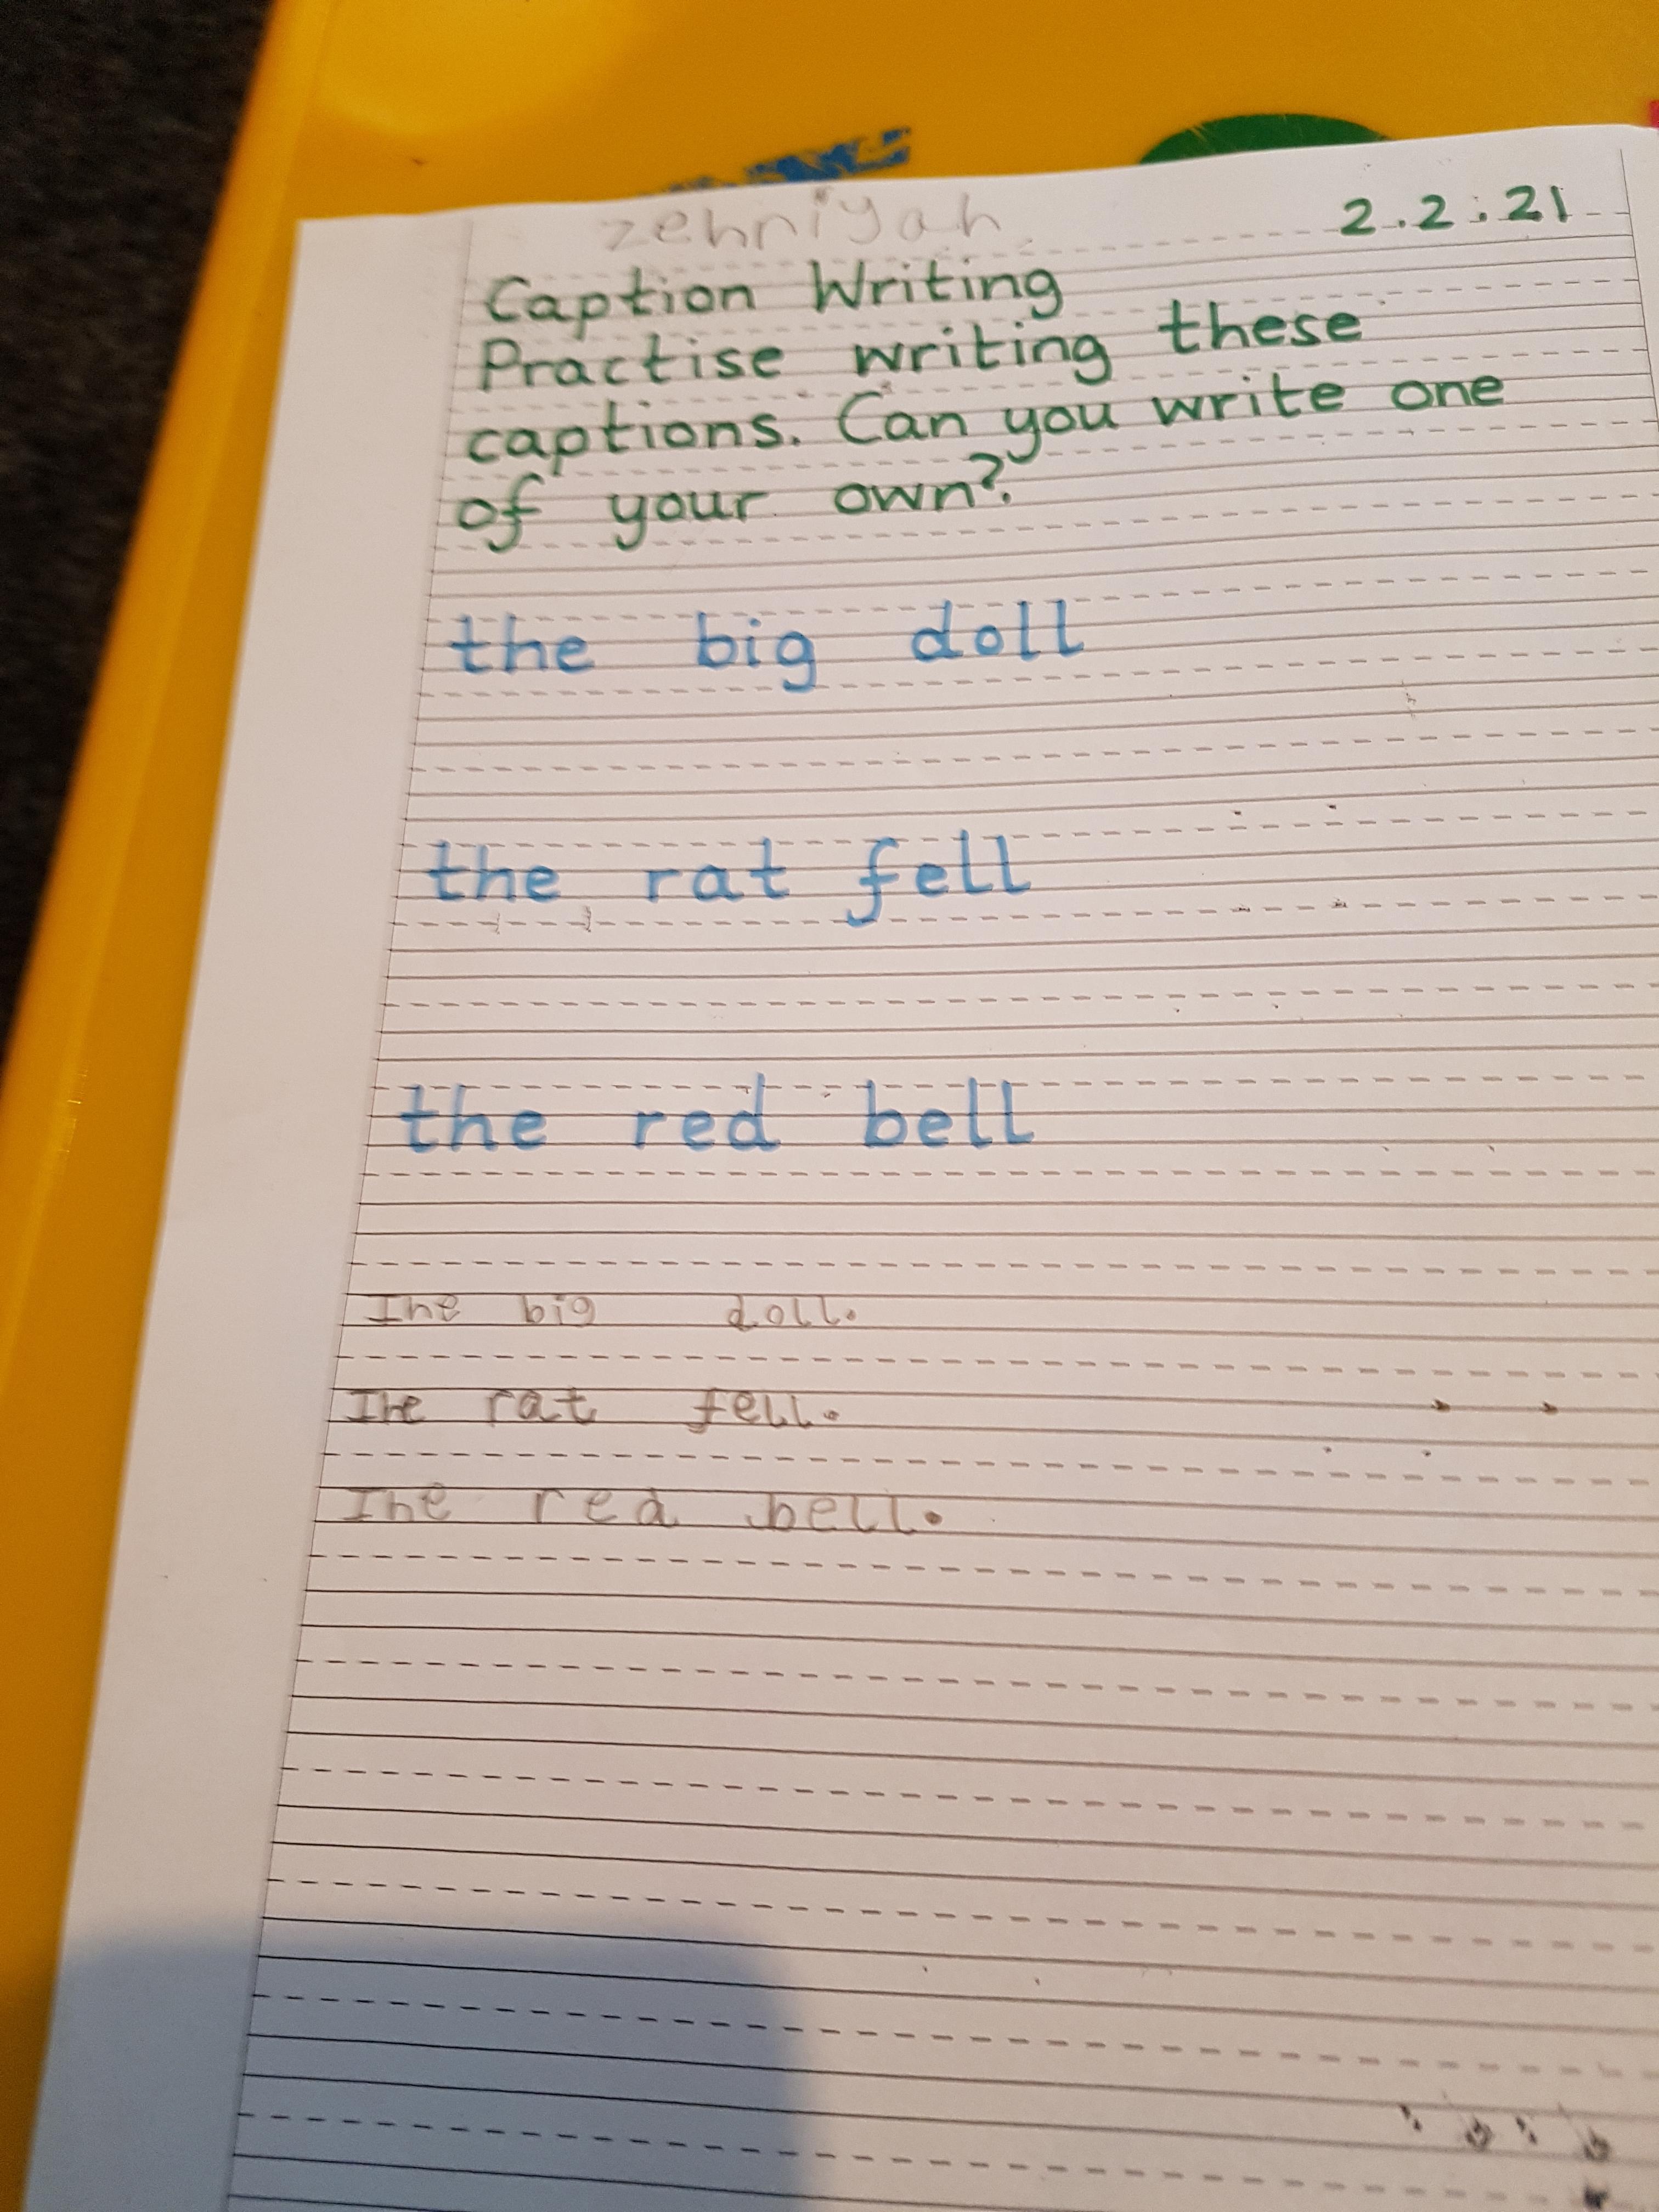 zehniyah
2.2.21
Caption Writing
Practise writing these
captions. Can you write one
of your own?
the big doll
the rat fell
the red bell
The big doll.
The rat fell.
The red bell.